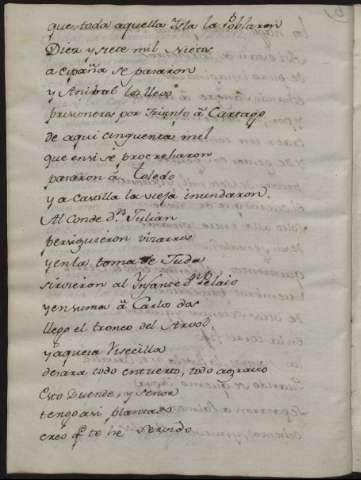 que toda aquella Isla la Poblaron
Diez y siete mil Nietos
a españa se pasaron
y Anibal los llevo
prisioneros por triunfo â Cartago
de aqui cinquenta mil
que en si se procrearon
pasaron â Toledo
y a Castilla la vieja inundaron.
Al Conde d.n Julian
persiguieron vizarros
y en la toma de Tuda
sirvieron al Ynfante d.n Pelaio
y en suma â Carlo dos
llego el tronco del Arvol
y aqueia Viscilla
deiara todo entuerto, todo agravio
Esto Duende, y Señor
tengo asi plantado
creo q.e te he servido